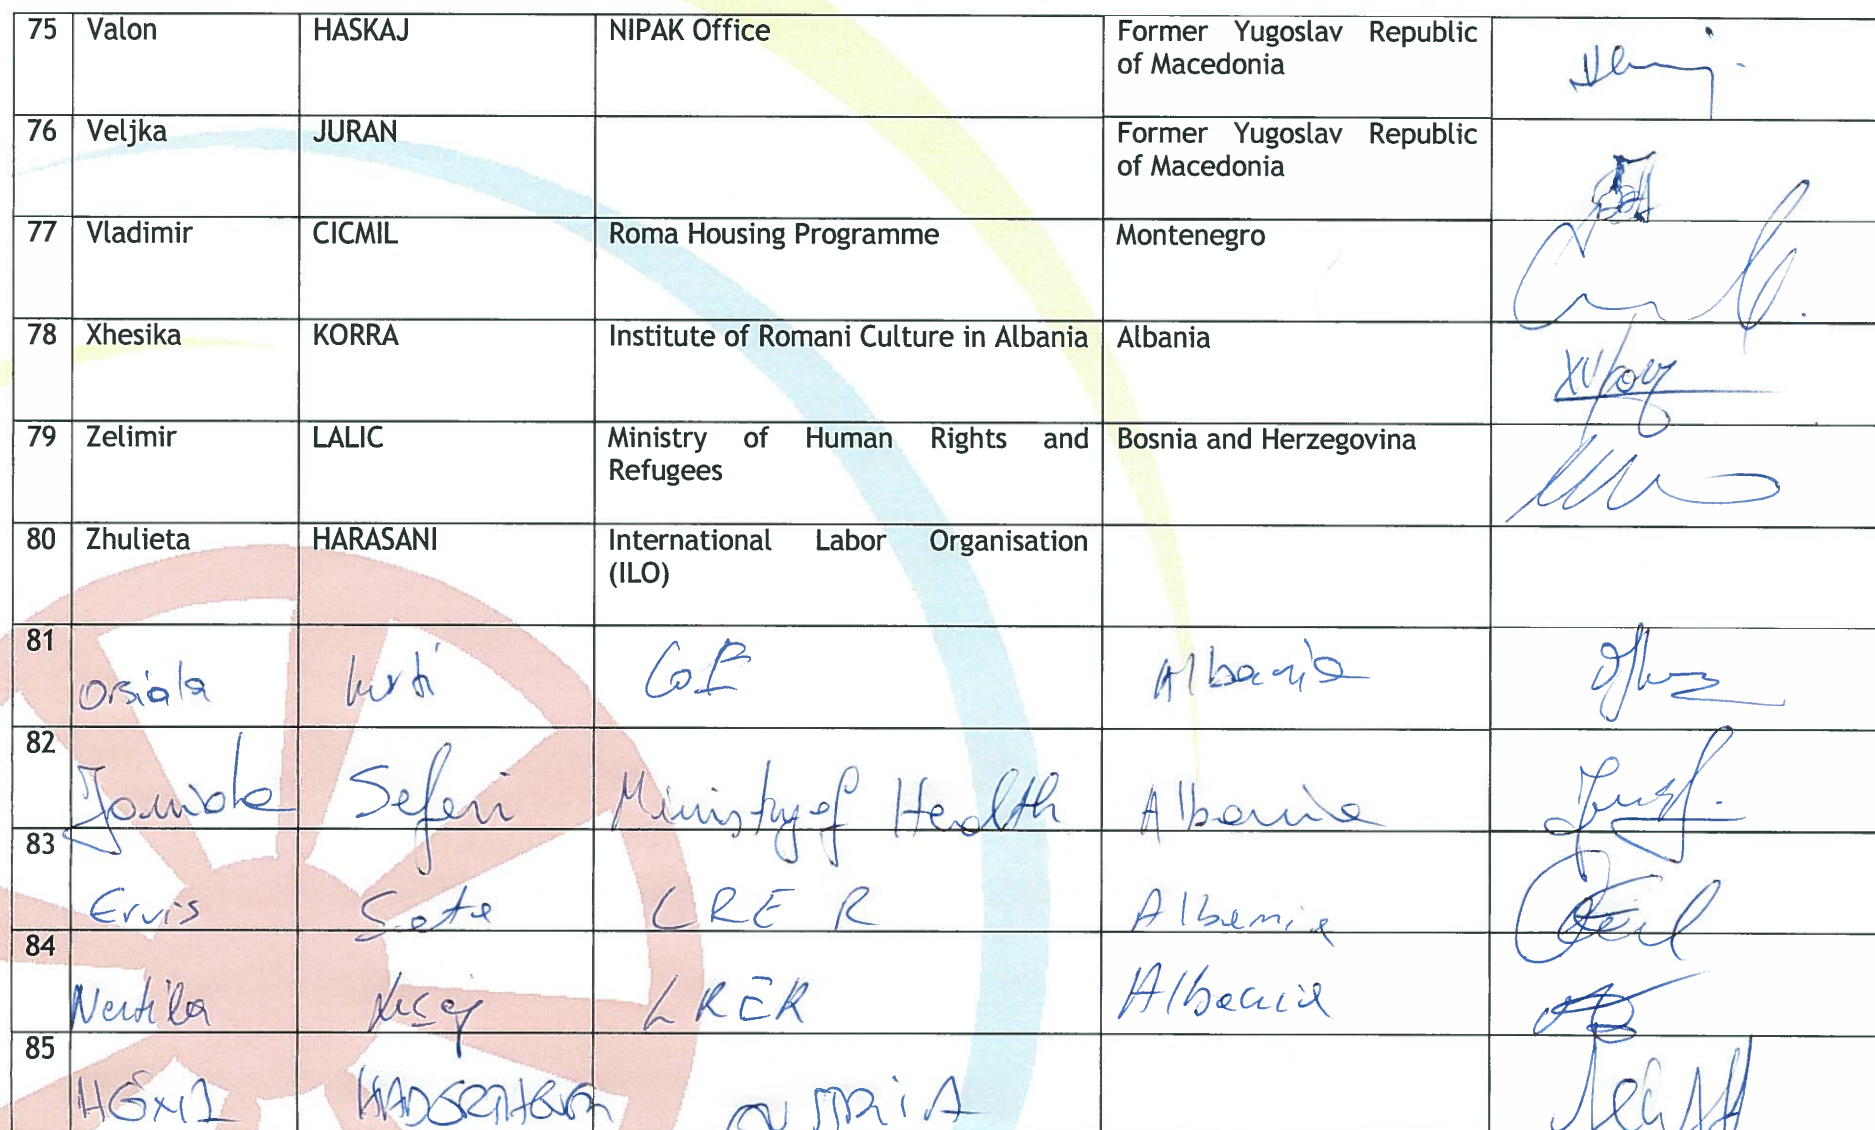 75 Valon HASKAJ NIPAK Office Former Yugoslav Republic
of Macedonia
76 Veljka JURAN Former Yugoslav Republic
of Macedonia
77 Vladimir CICMIL Roma Housing Programme Montenegro
78 Xhesika KORRA Institute of Romani Culture in Albania Albania
79 Zelimir LALIC Ministry of Human Rights and Bosnia and Herzegovina
Refugees
80 Zhulieta HARASANI International Labor Organisation
(ILO)
81
Orsiola Kurti CoE Albania
82
Jonida Seferi Ministry of Health Albania
83
Ervis Sota LRER Albania
84
Nertila LRER Albania
85